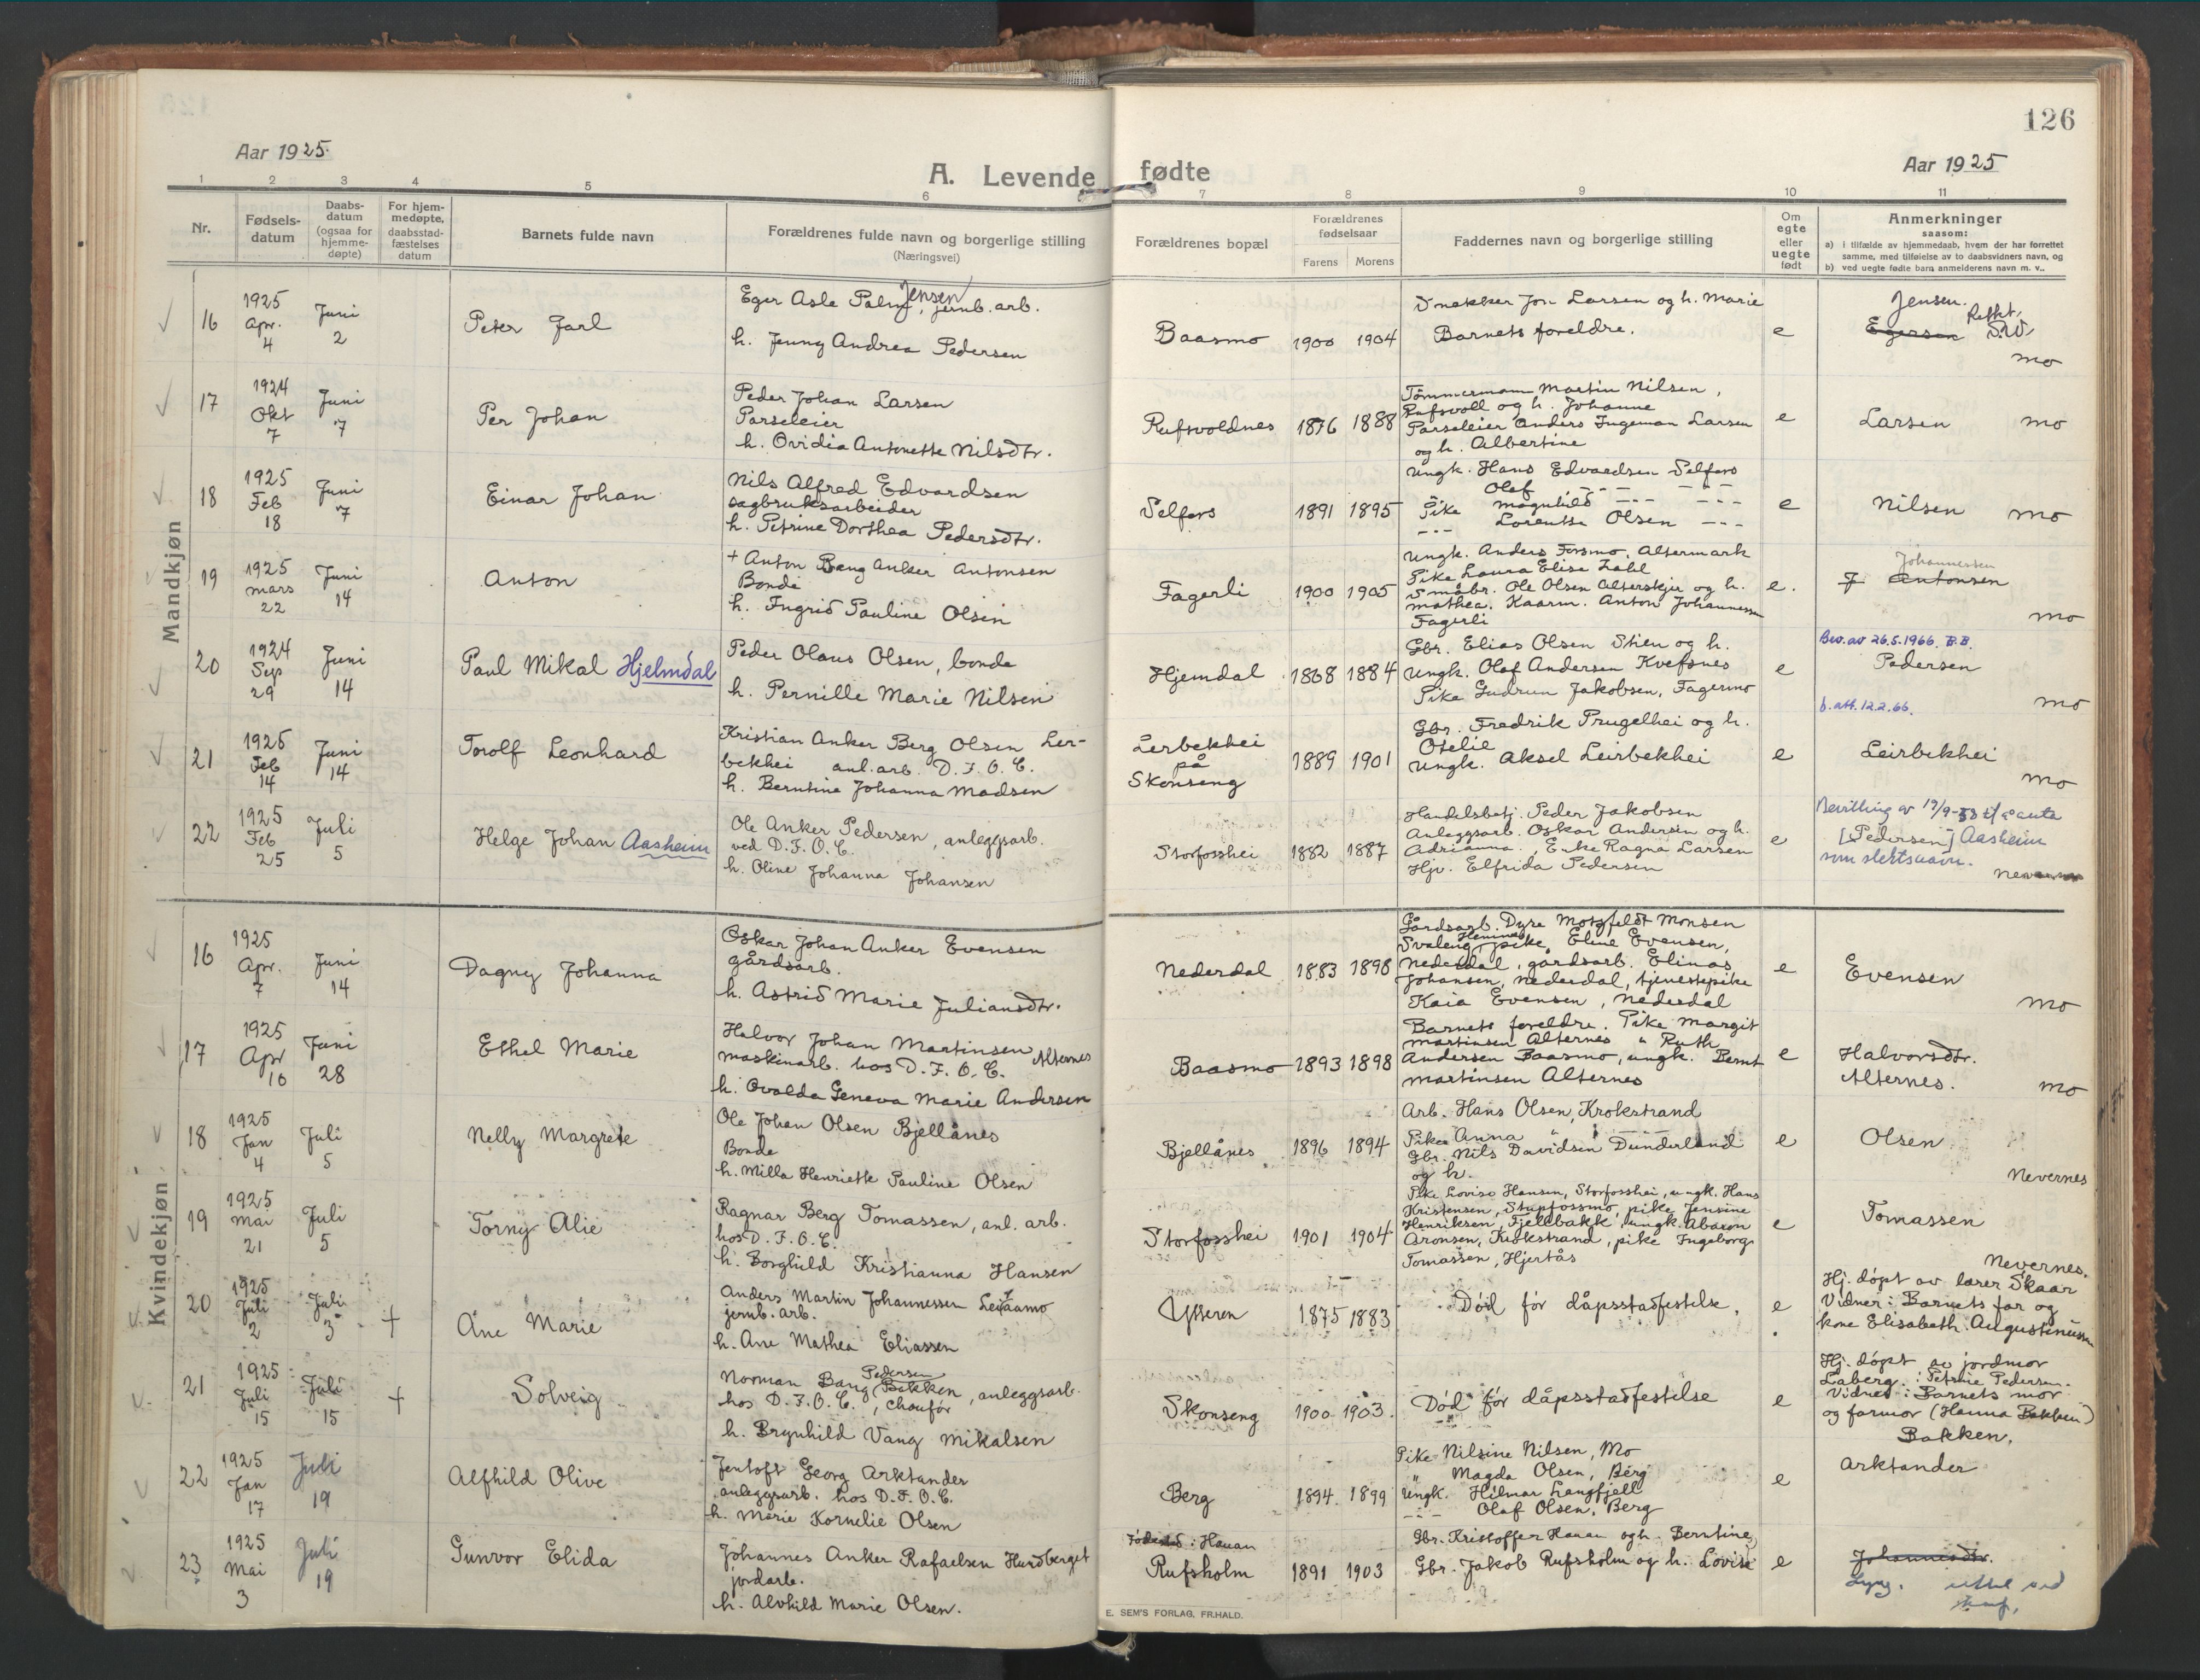 126
Aar 1925.
Aar 1925
A. Levende fødte
1 2 3 4 5 6 7 8 9 10 11
Nr.
Fødsels-
datum
Daabs-
datum
(ogsaa for
hjemme-
døpte)
For hjem-
medøpte,
daabsstad-
fæstelses
datum
Barnets fulde navn
Forældrenes fulde navn og borgerlige stilling
(Næringsvei)
Forældrenes bopæl
Forældrenes
fødselsaar
Farens Morens
Faddernes navn og borgerlige stilling
Om
egte
eller
uegte
født
Anmerkninger
saasom:
a) i tilfælde av hjemmedaab, hvem der har forrettet
samme, med tilføielse av to daabsvidners navn, og
b) ved uegte fødte barn anmelderens navn m. v..
Mandkjøn
16
1925
Apr.
4
Juni
2
Peter Jarl
Eger Asle Palm Jensen, jernb. arb.
h. Jenny Andrea Pedersen
Baasmo
1900 1904
Snekker Jon Larsen og h. Marie
Barnets foreldre.
e
Jensen.
Egersen
Rettet,
Mo
17
1924
Okt
7
Juni
7
Per Johan
Peder Johan Larsen
Parseleier
h. Ovidia Antonette Nilsdtr.
Rufsvoldnes
1876 1888
Tømmermann Martin Nilsen,
Rufsvoll og h. Johanne
Parseleier Anders Ingeman Larsen
og h. Albertine
e
Larsen Mo
18
1925
Feb
18
Juni
7
Einar Johan
Nils Alfred Edvardsen
sagbruksarbeider
h. Petrine Dorthea Pedersdtr.
Selfors
1891 1895
Ungk. Hans Edvardsen Selfors
Olef --- ---
Pike Magnhild --- ---
--- Lorentse Olsen ---
e
Nilsen Mo
19
1925
Mars
22
Juni
14
Anton
+ Anton Bang Anker Antonsen
Bonde
h. Ingrid Pauline Olsen
Fagerli
1900 1905
Ungk. Anders Forsmo, Altermark
Pike Laura Elise Zahl
Småbr. Ole Olsen Alterskjer og h.
Mathea. Kaarm. Anton Johannessen
Fagerli
e.
Johannessen
Antonsen
Mo
20
1924
Sep
29
Juni
14
Paul Mikal Hjelmdal
Peder Olaus Olsen, bonde
h. Pernille Marie Nilsen
Hjemdal
1868 1884
Gbr. Elias Olsen Stien og h.
Ungk. Olaf Andersen Kvefsnes
Pike Gudrun Jakobsen, Fagermo
e
Bev. av 26.5.1966. B.B.
Pedersen
f. att. 12.2.66.
Mo
21
1925
Feb
14
Juni
14
Torolf Leonhard
Kristian Anker Berg Olsen Ler-
bekkhei anl. arb. D.F.O.C.
h. Berntine Johanna Madsen
Lerbekkhei
på
Skonseng
1889 1901
Gbr. Fredrik Prugelhei og h.
Otelie
Ungk. Aksel Leirbekhei
e
Leirbekhei
Mo
22
1925
Feb
25
Juli
5
Helge Johan Aasheim
Ole Anker Pedersen, anleggsarb.
ved D.F.O.C.
h. Oline Johanna Johansen
Storfosshei
1882 1887
Handelsbetj. Peder Jakobsen
Anleggsarb. Oskar Andersen og h.
Adrianna, Enke Ragna Larsen
Hjv. Elfrida Pedersen
e
Bevilling av 19/9-53 t/ å anta
[Pedersen] Aasheim
som slektsnavn.
Kvindekjøn
16
1925
Apr.
7
Juni
14
Dagny Johanna
Oskar Johan Anker Evensen
gårdsarb.
h. Astrid Marie Juliansdtr.
Nederdal
1883 1898
Gårdsarb. Dyre Motzfeldt Monsen
Svaleng, pike Eline Evensen,
Nederdal, gårdsarb. Elinas
Johansen, Nederdal, tjenestepike
Kaia Evensen, Nederdal
e
Evensen
Mo
17
1925
Apr
16
Juni
28
Ethel Marie
Halvor Johan Martinsen Alternes
maskinarb. hos D.F.O.C.
h. Ovalda Geneva Marie Andersen
Baasmo
1893 1898
Barnets foreldre. Pike Margit
Martinsen Alternes " Ruth
Andersen Baasmo, ungk. Bernt
Martinsen Alternes
e
Halvorsdtr.
Alternes.
Mo
18
1925
Jan
4
Juli
5
Nelly Margrete
Ole Johan Olsen Bjellånes
Bonde
h. Milla Henriette Pauline Olsen
Bjellånes
1896 1894
Arb. Hans Olsen, Krokstrand
Pike Anna " ---
Gbr. Nils Davidsen Dunderland
og h.
e
Olsen
Nevernes
19
1925
Mai
21
Juli
5
Torny Alie
Ragnar Berg Tomassen, anl. arb.
hos D.F.O.C.
h. Borghild Kristianna Hansen
Storfosshei
1901 1904
Pike Lovise Hansen, Storfosshei, ungk. Hans
Kristensen, Stupfossmo, pike Jensine
Henriksen, Fjellbakk, ungk. Abaron
Aronsen, Krokstrand, pike Ingeborg
Tomassen, Hjertås
e
Tomassen
Nevernes.
20
1925
Juli
2
Juli
3
+
Ane Marie
Anders Martin Johannessen
jernb. arb.
h. Ane Mathea Eliassen
Ytteren
1875 1883
Død før dåpsstadfestelse.
e
Hj. døpt av lærer Skaar
Vidner: Barnets far og
kone Elisabeth Augustinussen
21
1925
Juli
15
Juli
15
+
Solveig
Norman Bang Pedersen Bakken, anleggsarb.
hos D.F.O.C., chaufør
h. Brynhild Vang Mikalsen
Skonseng
1900 1903.
Død før dåpsstadfestelse
e
Hj. døpt av jordmor
Laberg. : Petrine Pedersen.
Vidner: Barnets mor
og farmor (Hanna Bakken)
Bakken.
22
1925
Jan
17
Juli
19
Alfhild Olive
Jentoft Georg Arktander
anleggsarb. hos D.F.O.C.
h. Marie Kornelie Olsen
Berg
1894 1899
Pike Nilsine Nilsen, Mo
" Magda Olsen, Berg
Ungk. Hilmar Langfjell
--- Olaf Olsen, Berg
e
Arktander
23
1925
Mai
3
Juli
19
Gunvor Elida
Johannes Anker Rafaelsen Hundberget
jordarb.
h. Alvhild Marie Olsen.
Fødested: Hauan
Rufsholm
1891 1903
Gbr. Kristoffer Hauan og h. Berntine,
Gbr. Jakob Rufsholm og h. Lovise
e
Johannesdtr.
E. SEM'S FORLAG, FR.HALD.